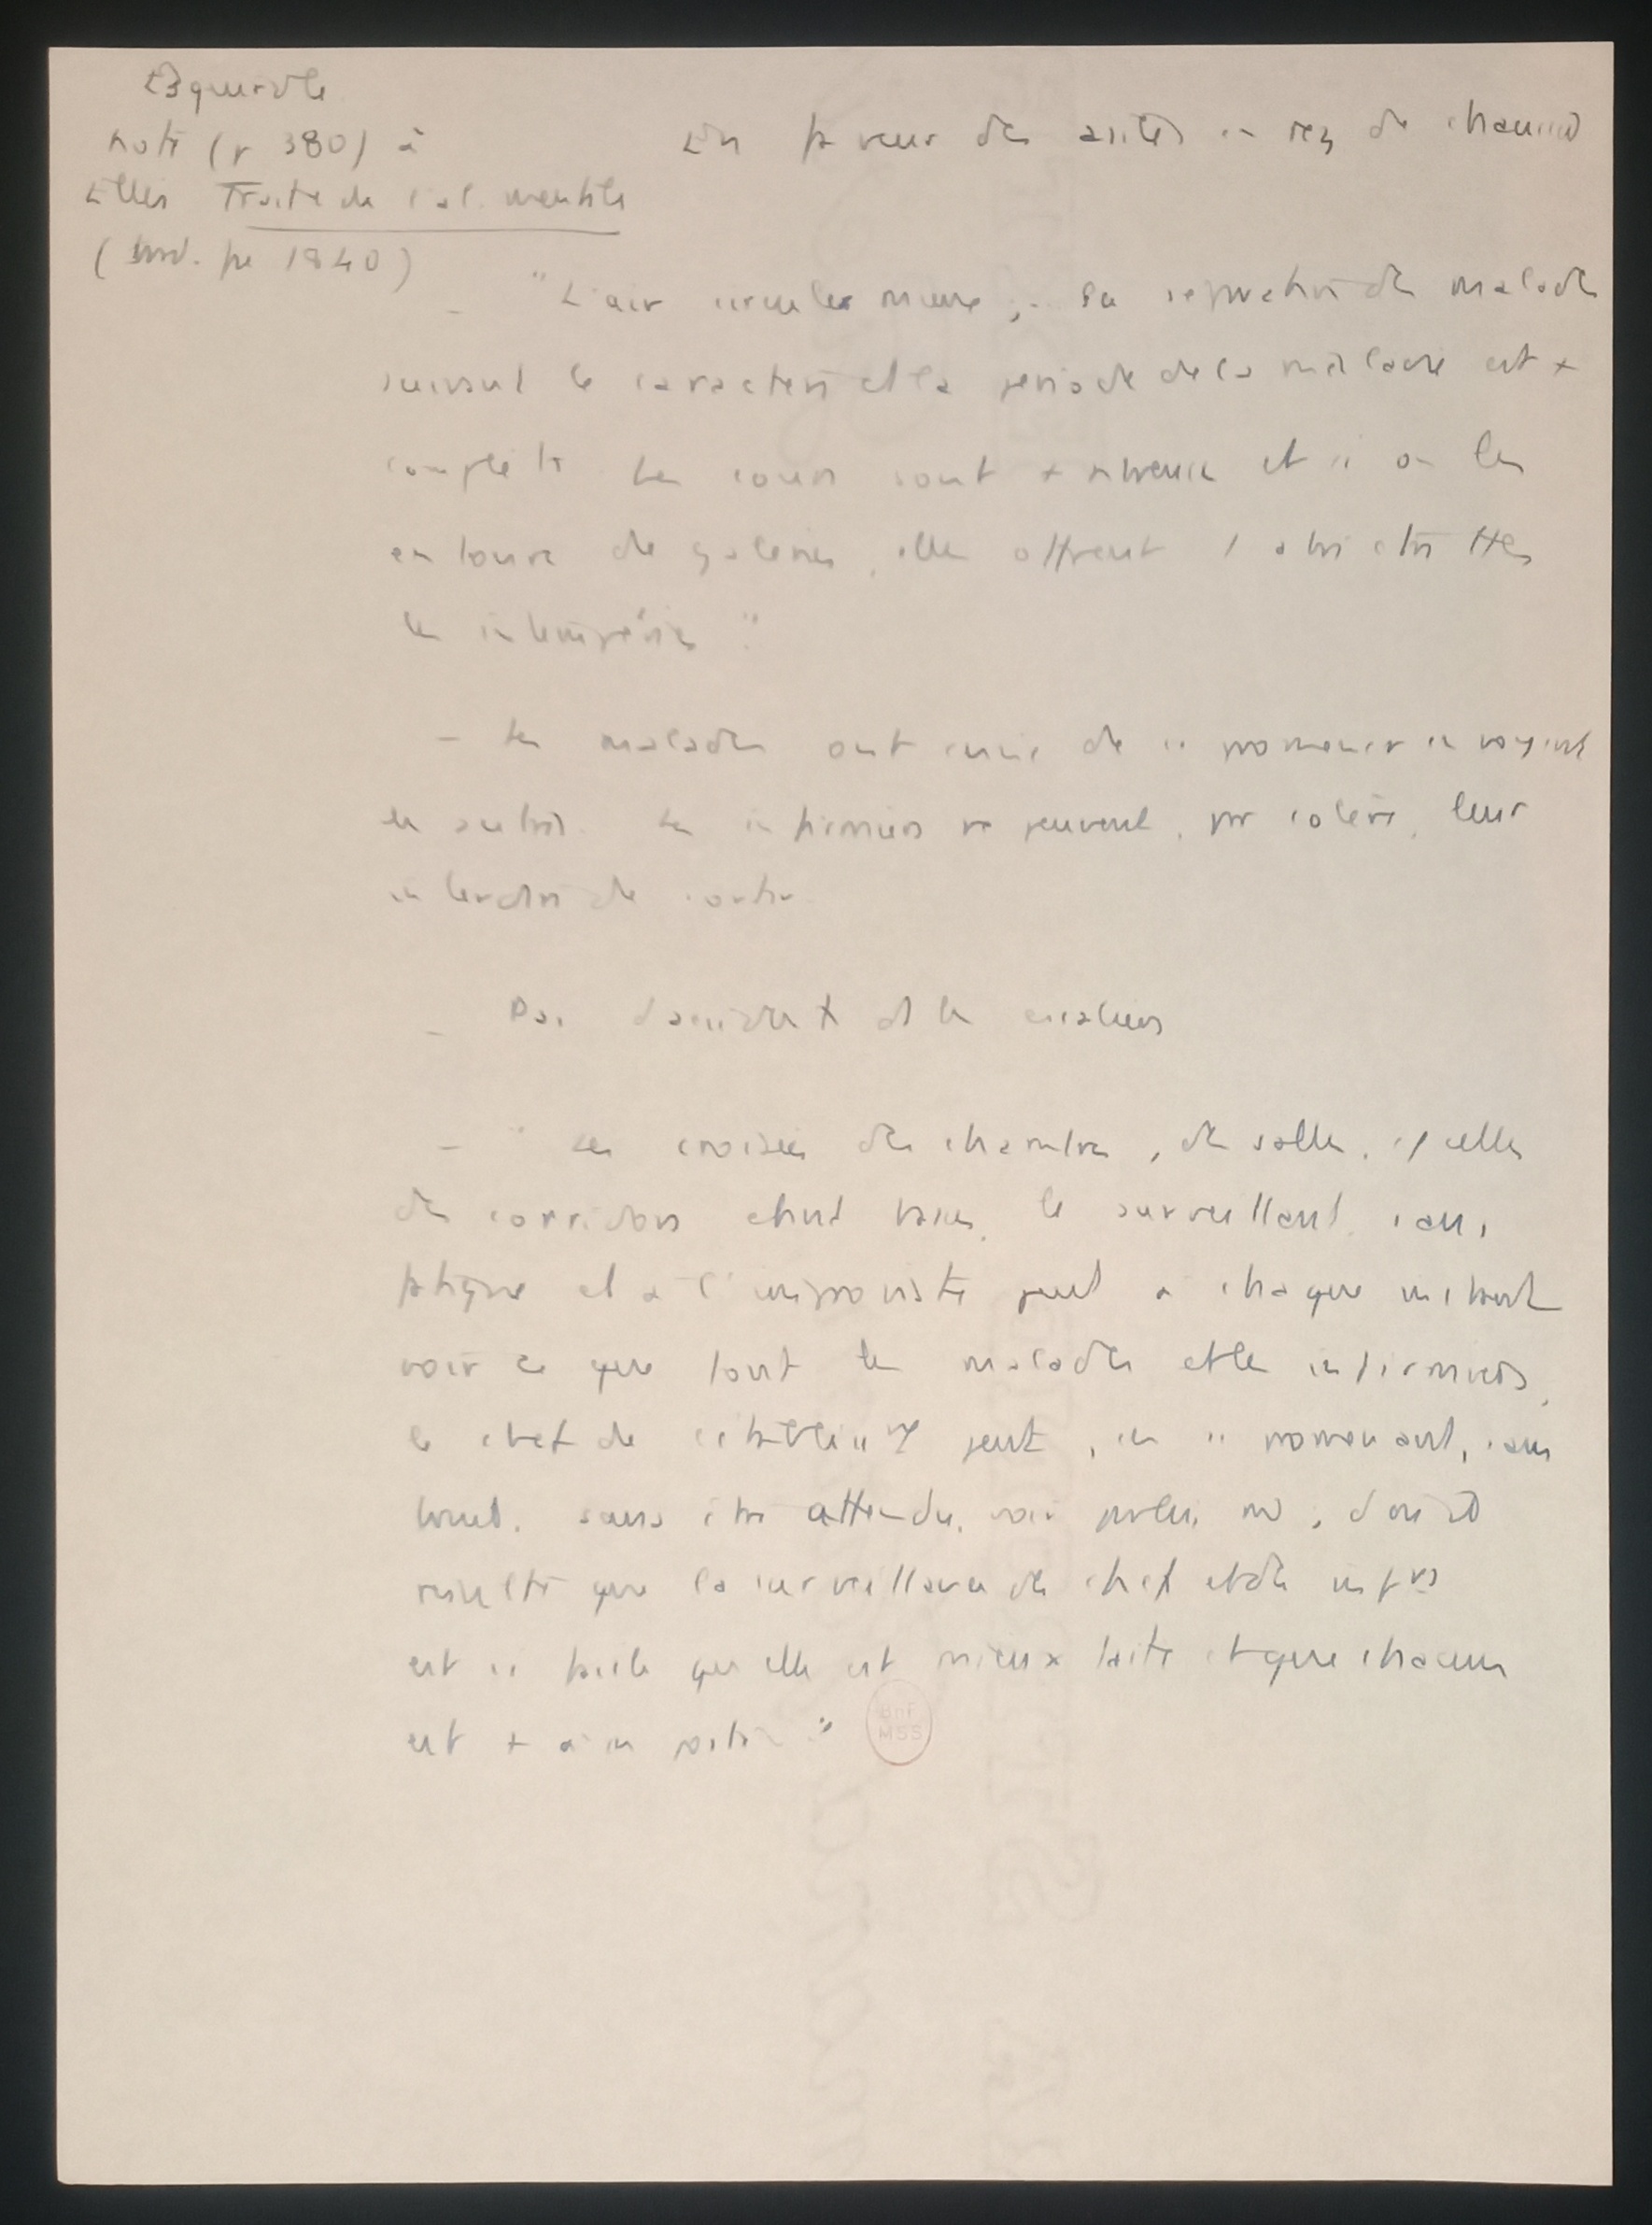 Esquirol
note (p 380) à
Ellis Traité de l'al. mentale
(trad. fse 1840)
En faveur des asiles en rez de chaussée
- "L'air circule mieux ; la séparation des malades
suivant le caractère et la période de la maladie est +
complète. Les cours sont + nbreuses et si on les
entoure de galeries, elles offrent 1 abri ctre ttes
les intempéries"
- les malades ont envie de se promener en voyant
les autres. Les infirmiers ne peuvent, par colère, leur
interdire de sortir
- Pas d'accident ds les escaliers
- "Les croisées des chambres, des salles, celles
des corridors étant basses, le surveillant, sans
fatigue et à l'improviste peut à chaque instant
voir ce que font les malades et les infirmiers,
le chef de l'établisst peut, en se promenant, sans
bruit, sans être attendu, voir ; d'où il
résulte que la surveillance des chefs et des infrs
est si facile qu'elle est mieux faite et que chacun
est + à sa
BnF
MSS